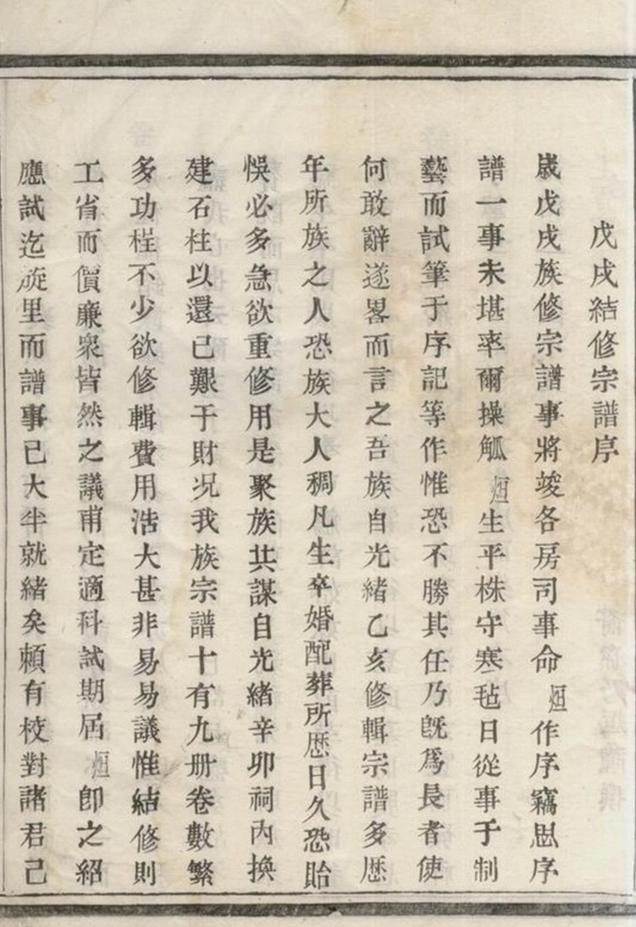 戊戌結修宗譜序
歲戊戌族修宗譜事將竣各房司事命烜作序竊思序
譜一事未堪率爾操觚烜生平株守寒毡日從事于制
藝而試筆于序記等作惟恐不勝其任乃旣爲長者使
何敢辭遂畧而言之吾族自光緒乙亥修輯宗譜多歷
年所族之人恐族大人稠凡生卒婚配葬所歷日久恐貽
悞必多急欲重修用是聚族共謀自光緒辛卯祠內換
建石柱以還已艱于財况我族宗譜十有九册卷數繁
多功程不少欲修輯費用浩大甚非易易議惟結修則
工省而價廉衆皆然之議甫定適科試期屆烜卽之紹
應試迄旋里而譜事已大半就緒矣賴有校對諸君己